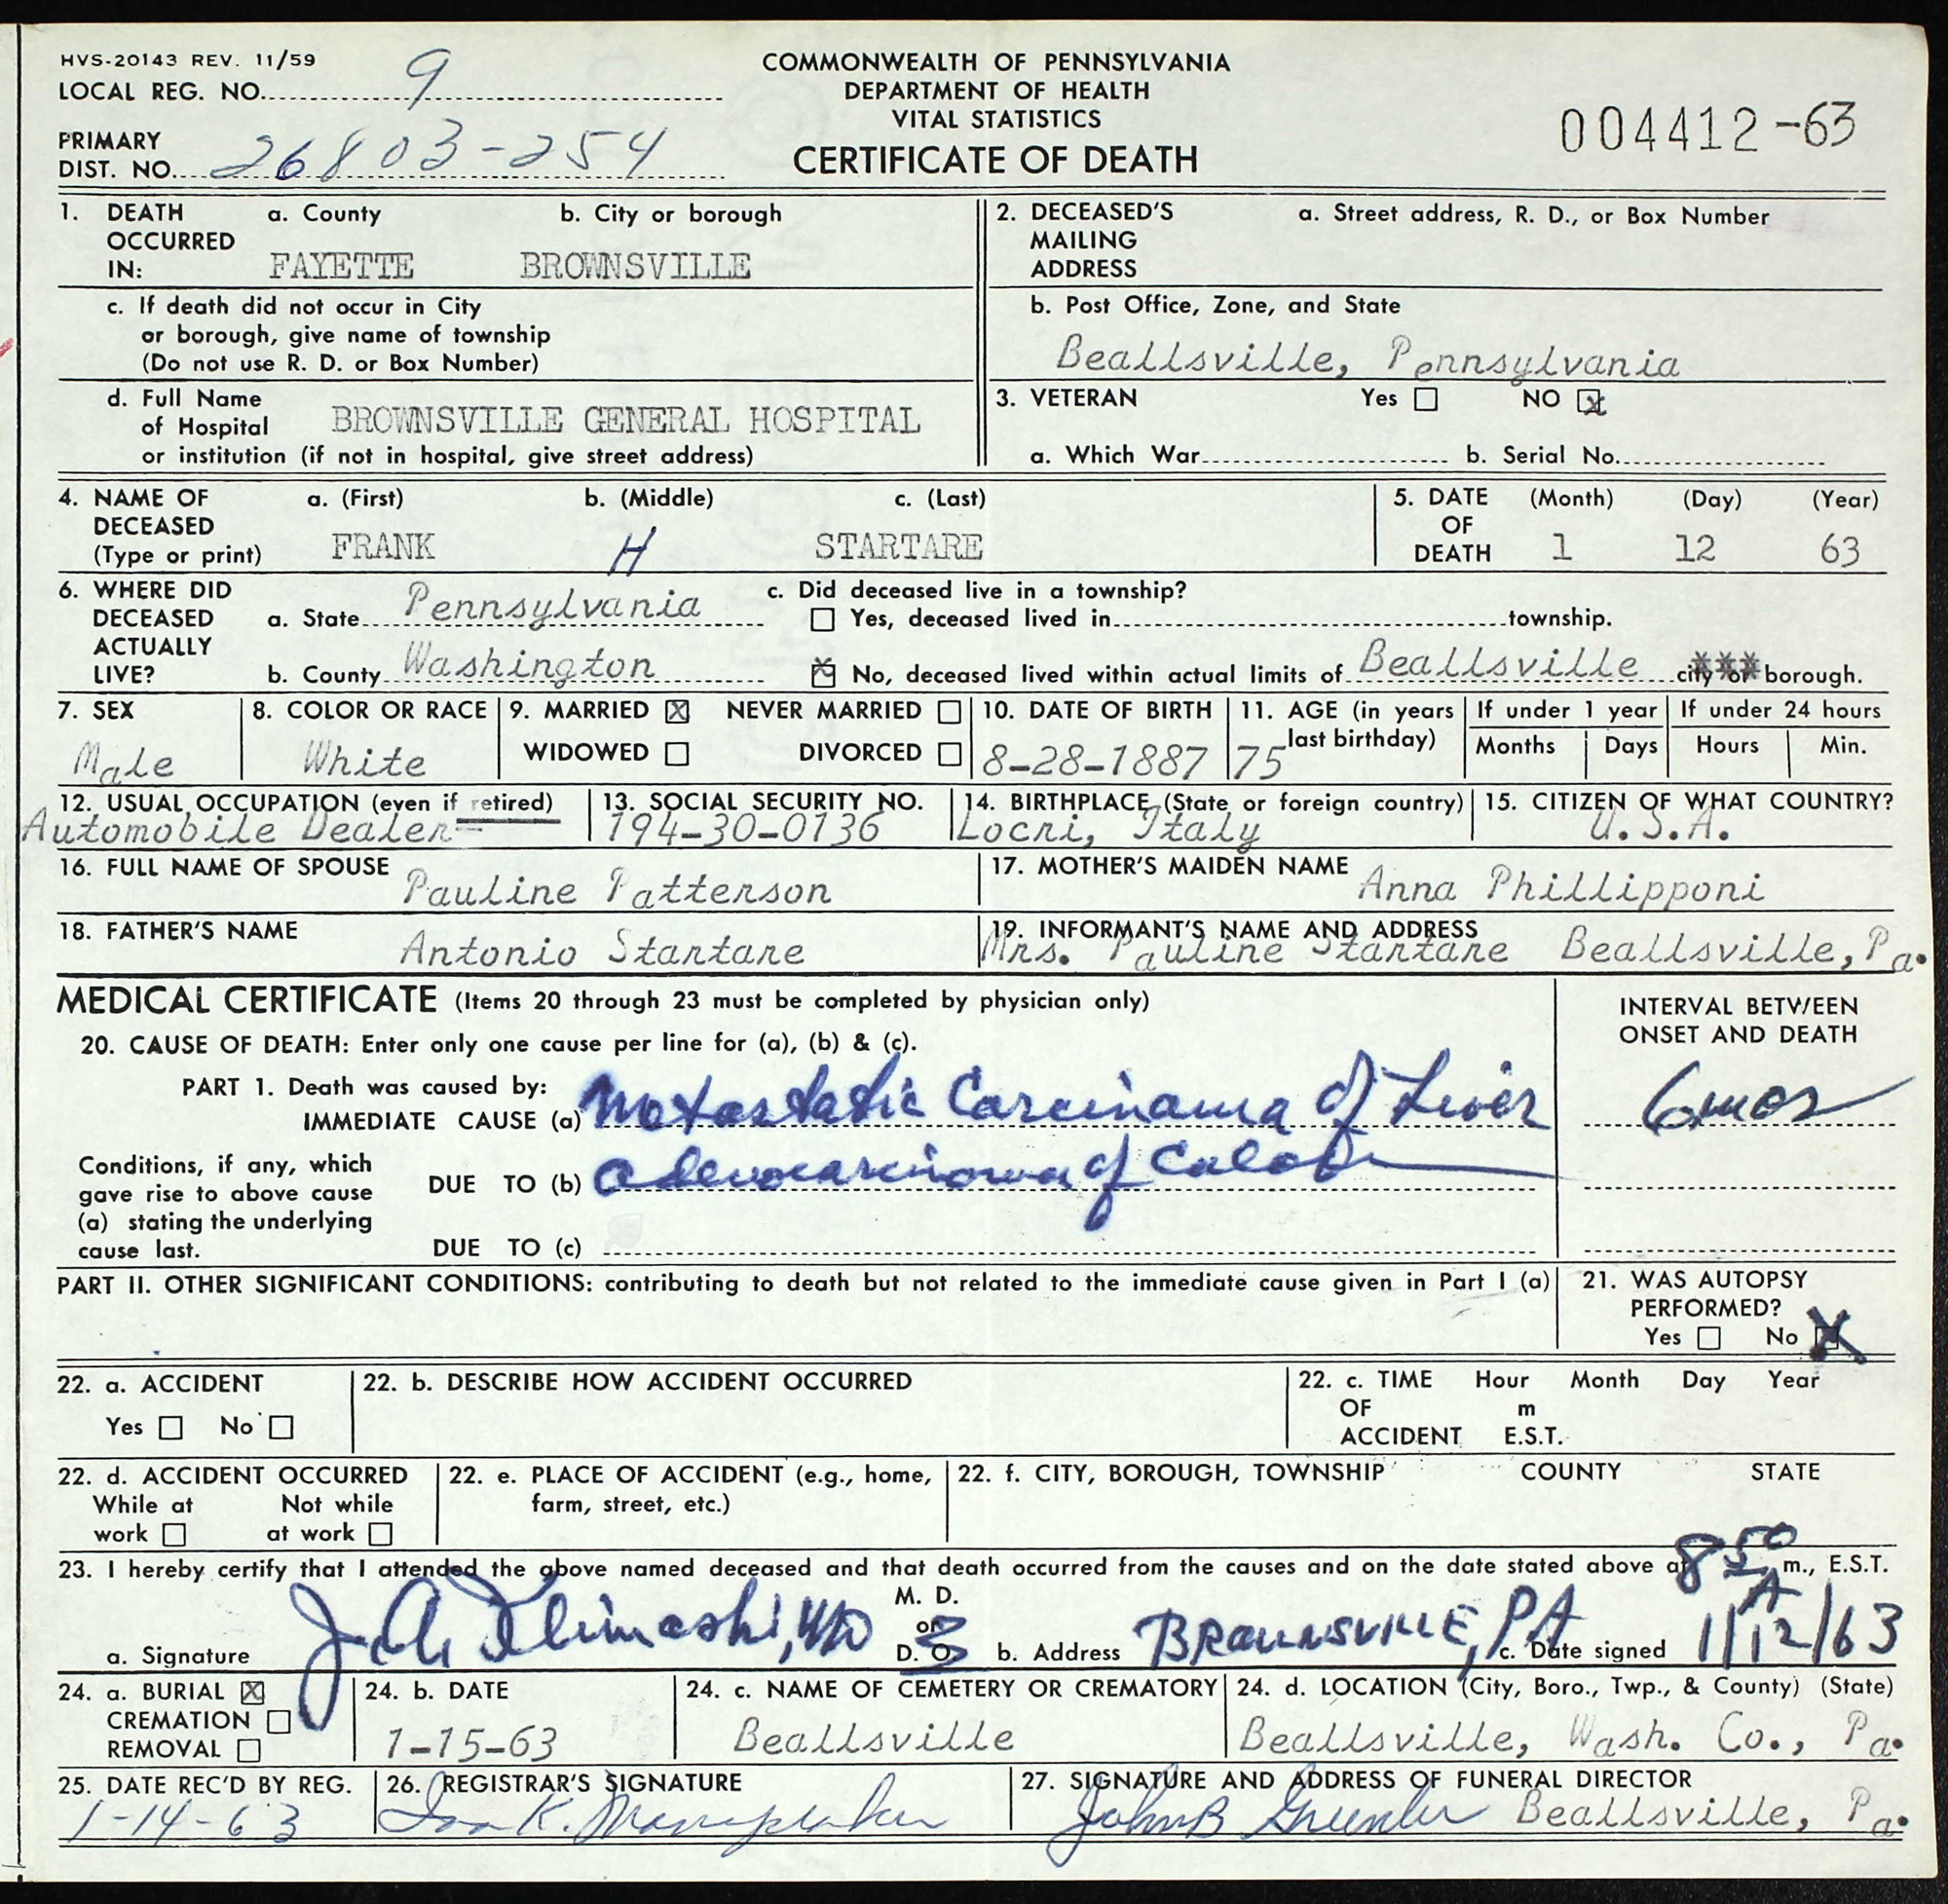 HVS-20143 REV. 11/59
LOCAL REG. NO. 9
COMMONWEALTH OF PENNSYLVANIA
DEPARTMENT OF HEALTH
VITAL STATISTICS
CERTIFICATE OF DEATH
004412-63
PRIMARY
DIST. NO. 26803-254
1. DEATH OCCURRED IN: a. County b. City or borough
FAYETTE BROWNSVILLE
c. If death did not occur in City
or borough, give name of township
(Do not use R. D. or Box Number)
d. Full Name
of Hospital BROWNSVILLE GENERAL HOSPITAL
or institution (if not in hospital, give street address)
2. DECEASED'S MAILING ADDRESS a. Street address, R. D., or Box Number
b. Post Office, Zone, and State
Beallsville, Pennsylvania
3. VETERAN Yes NO X
a. Which War b. Serial No.
4. NAME OF DECEASED (Type or print) a. (First) b. (Middle) c. (Last)
FRANK H STARTARE
5. DATE OF DEATH (Month) (Day) (Year)
1 12 63
6. WHERE DID DECEASED ACTUALLY LIVE?
a. State Pennsylvania
b. County Washington
c. Did deceased live in a township?
Yes, deceased lived in township.
X No, deceased lived within actual limits of Beallsville city or borough.
7. SEX
Male
8. COLOR OR RACE
White
9. MARRIED X NEVER MARRIED
WIDOWED DIVORCED
10. DATE OF BIRTH
8-28-1887
11. AGE (in years last birthday)
75
If under 1 year
Months Days
If under 24 hours
Hours Min.
12. USUAL OCCUPATION (even if retired)
Automobile Dealer
13. SOCIAL SECURITY NO.
194-30-0136
14. BIRTHPLACE (State or foreign country)
Locri, Italy
15. CITIZEN OF WHAT COUNTRY?
U.S.A.
16. FULL NAME OF SPOUSE Pauline Patterson
17. MOTHER'S MAIDEN NAME Anna Phillipponi
18. FATHER'S NAME Antonio Startare
19. INFORMANT'S NAME AND ADDRESS
Mrs. Pauline Startare Beallsville, Pa.
MEDICAL CERTIFICATE (Items 20 through 23 must be completed by physician only)
INTERVAL BETWEEN
ONSET AND DEATH
20. CAUSE OF DEATH: Enter only one cause per line for (a), (b) & (c).
PART 1. Death was caused by:
IMMEDIATE CAUSE (a) Metastatic Carcinoma of Liver 6 mos
Conditions, if any, which
gave rise to above cause
(a) stating the underlying
cause last.
DUE TO (b) Adenocarcinoma of Colon
DUE TO (c)
PART II. OTHER SIGNIFICANT CONDITIONS: contributing to death but not related to the immediate cause given in Part I (a)
21. WAS AUTOPSY
PERFORMED?
Yes No X
22. a. ACCIDENT
Yes No
22. b. DESCRIBE HOW ACCIDENT OCCURRED
22. c. TIME OF ACCIDENT Hour Month Day Year
m
E.S.T.
22. d. ACCIDENT OCCURRED
While at work Not while at work
22. e. PLACE OF ACCIDENT (e.g., home,
farm, street, etc.)
22. f. CITY, BOROUGH, TOWNSHIP COUNTY STATE
23. I hereby certify that I attended the above named deceased and that death occurred from the causes and on the date stated above at 8 50 A m., E.S.T.
a. Signature
M. D.
or
D. O.
b. Address BROWNSVILLE, PA
c. Date signed 1/12/63
24. a. BURIAL X
CREMATION
REMOVAL
24. b. DATE
1-15-63
24. c. NAME OF CEMETERY OR CREMATORY
Beallsville
24. d. LOCATION (City, Boro., Twp., & County) (State)
Beallsville, Wash. Co., Pa.
25. DATE REC'D BY REG.
1-14-63
26. REGISTRAR'S SIGNATURE
27. SIGNATURE AND ADDRESS OF FUNERAL DIRECTOR
John B Beallsville, Pa.